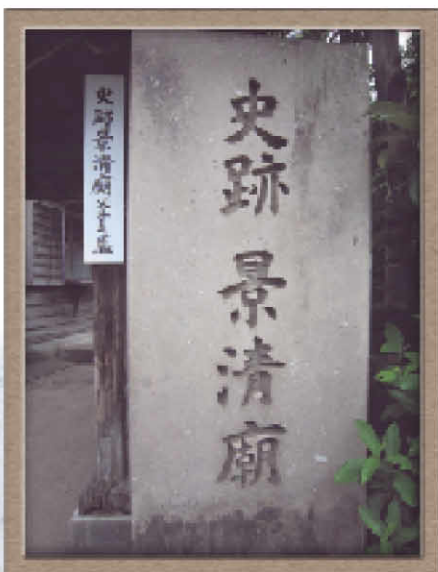 史跡 景清廟
史跡景清廟